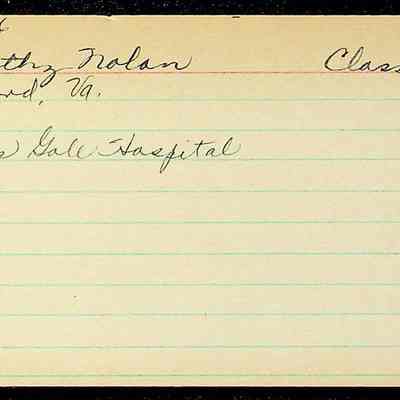 6
thy Nolan Class
ord, Va.
s Gale Hospital